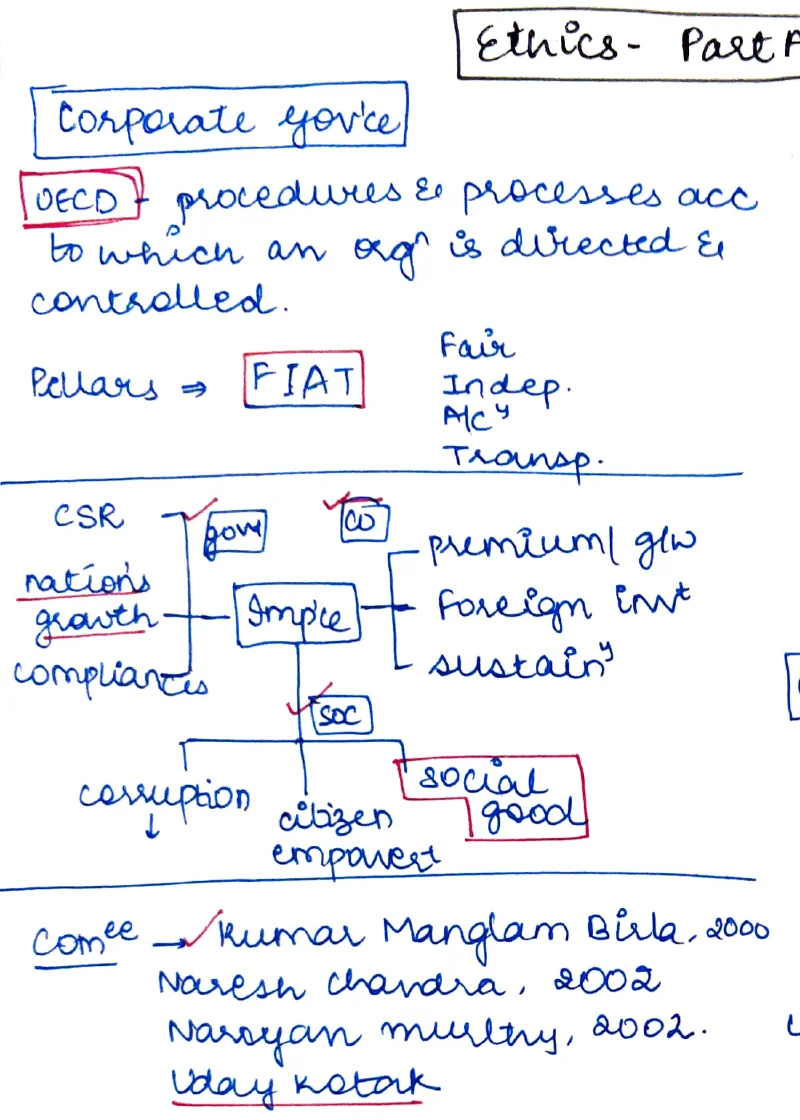 Ethics - Part A
Corporate gov'ce
OECD - procedures & processes acc
to which an orgⁿ is directed &
controlled.
Pillars ⇒ FIAT
Fair
Indep.
A/Cʸ
Transp.
CSR
govt
co
premium/ g/w
nation's
growth
Imp'ce
foreign invᵗ
compliances
sustainʸ
soc
corruption
↓
citizen
empowert
social
good
Comᵉᵉ → Kumar Manglam Birla, 2000
Naresh Chandra, 2002
Narayan murthy, 2002.
Uday Kotak